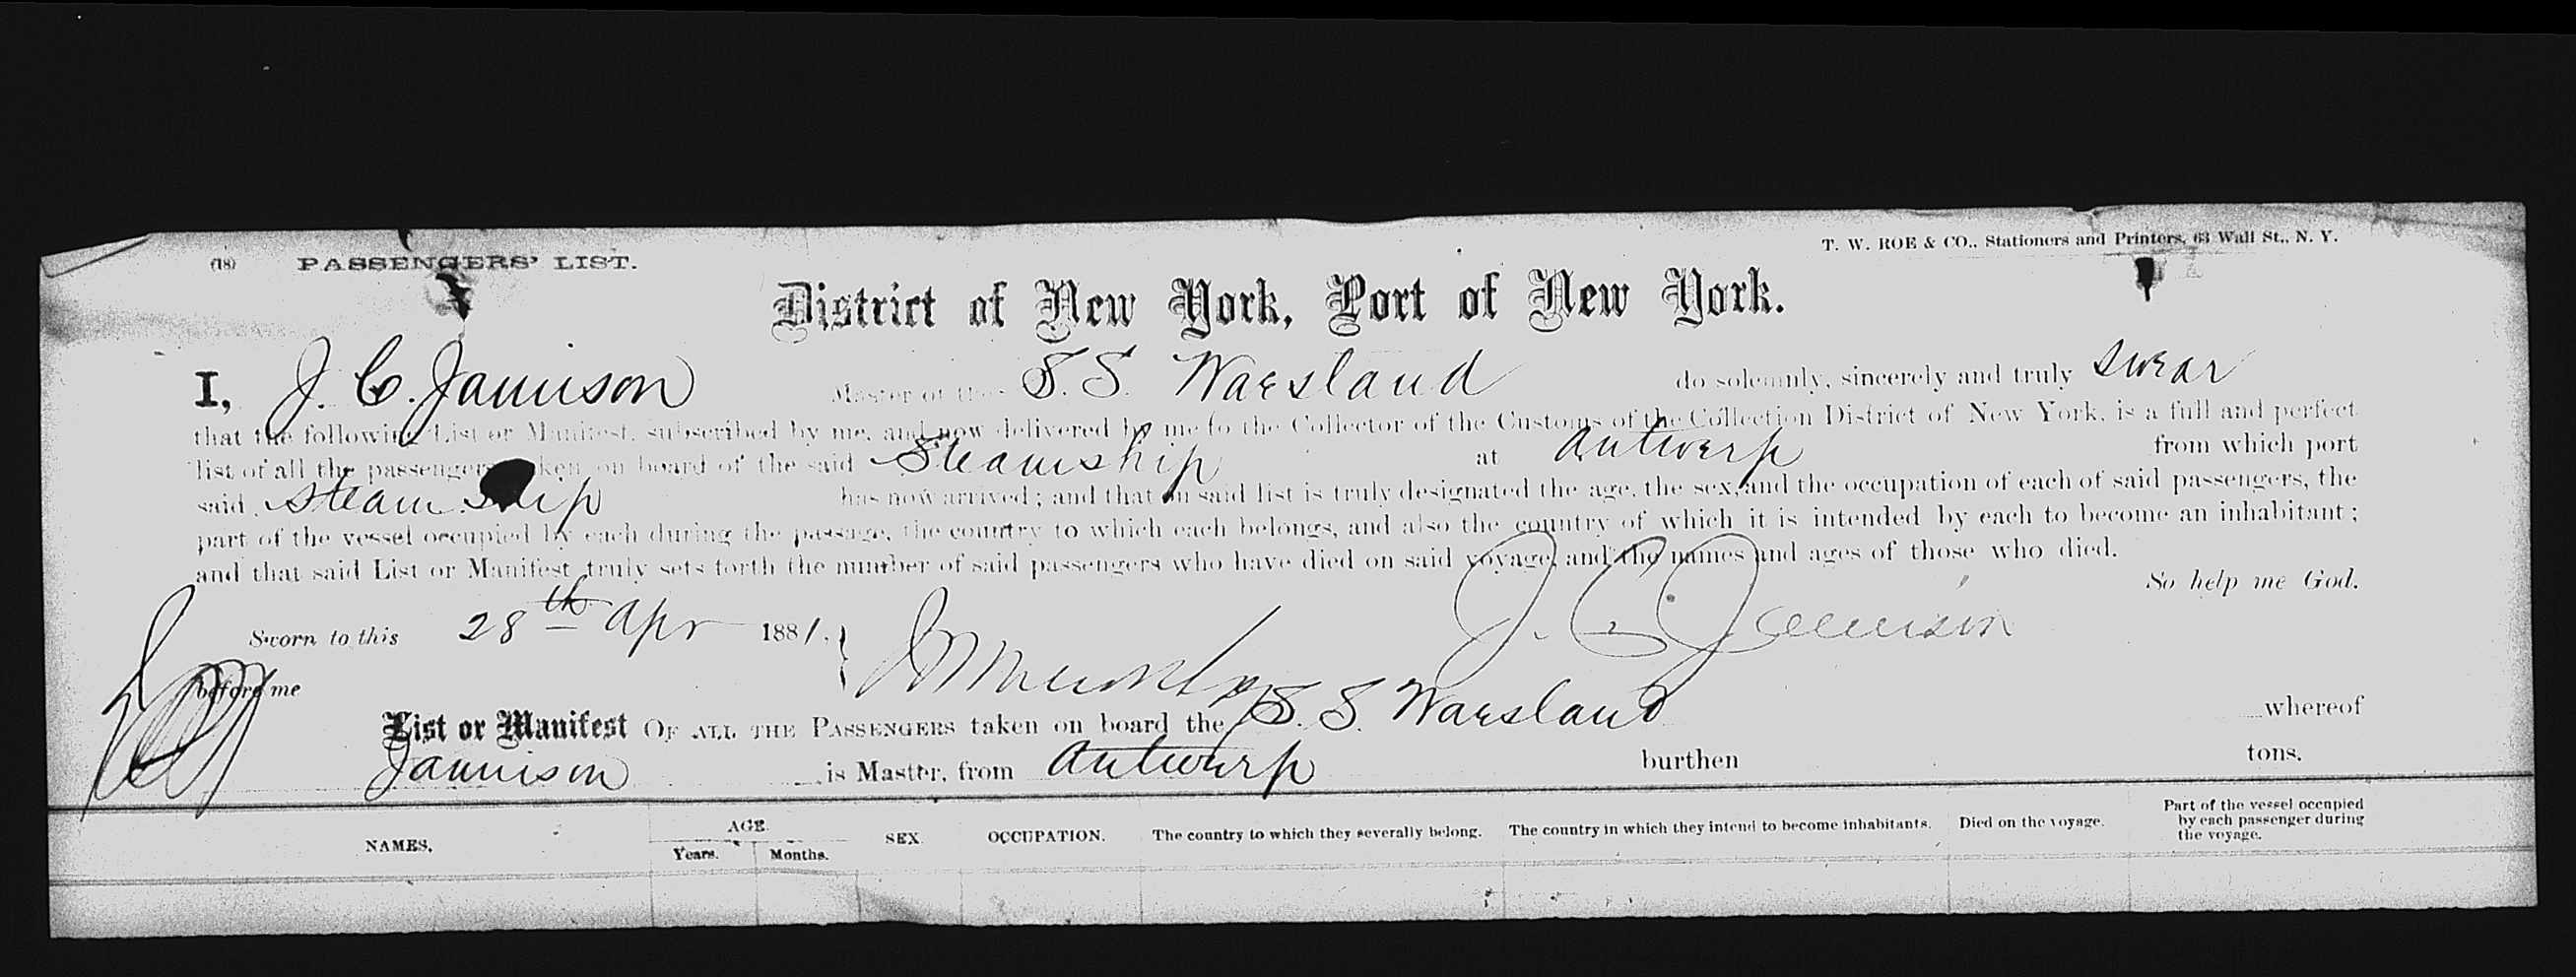 (18) PASSENGERS' LIST.
T. W. ROE & CO., Stationers and Printers, 63 Wall St., N. Y.
District of New York, Port of New York.
I, J. C. Jamison Master of the S. S. Waesland do solemnly, sincerely and truly swear
that the following List or Manifest, subscribed by me, and now delivered by me to the Collector of the Customs of the Collection District of New York, is a full and perfect
list of all the passengers taken on board of the said Steamship at Antwerp from which port
said steam ship has now arrived; and that on said list is truly designated the age, the sex, and the occupation of each of said passengers, the
part of the vessel occupied by each during the passage, the country to which each belongs, and also the country of which it is intended by each to become an inhabitant;
and that said List or Manifest truly sets forth the number of said passengers who have died on said voyage, and the names and ages of those who died.
So help me God.
Sworn to this 28th Apr 1881. J. C. Jamison
before me
List or Manifest OF ALL THE PASSENGERS taken on board the S. S. Waesland whereof
Jamison is Master, from Antwerp burthen tons.
NAMES. AGE. Years. Months. SEX. OCCUPATION. The country to which they severally belong. The country in which they intend to become inhabitants. Died on the voyage. Part of the vessel occupied by each passenger during the voyage.